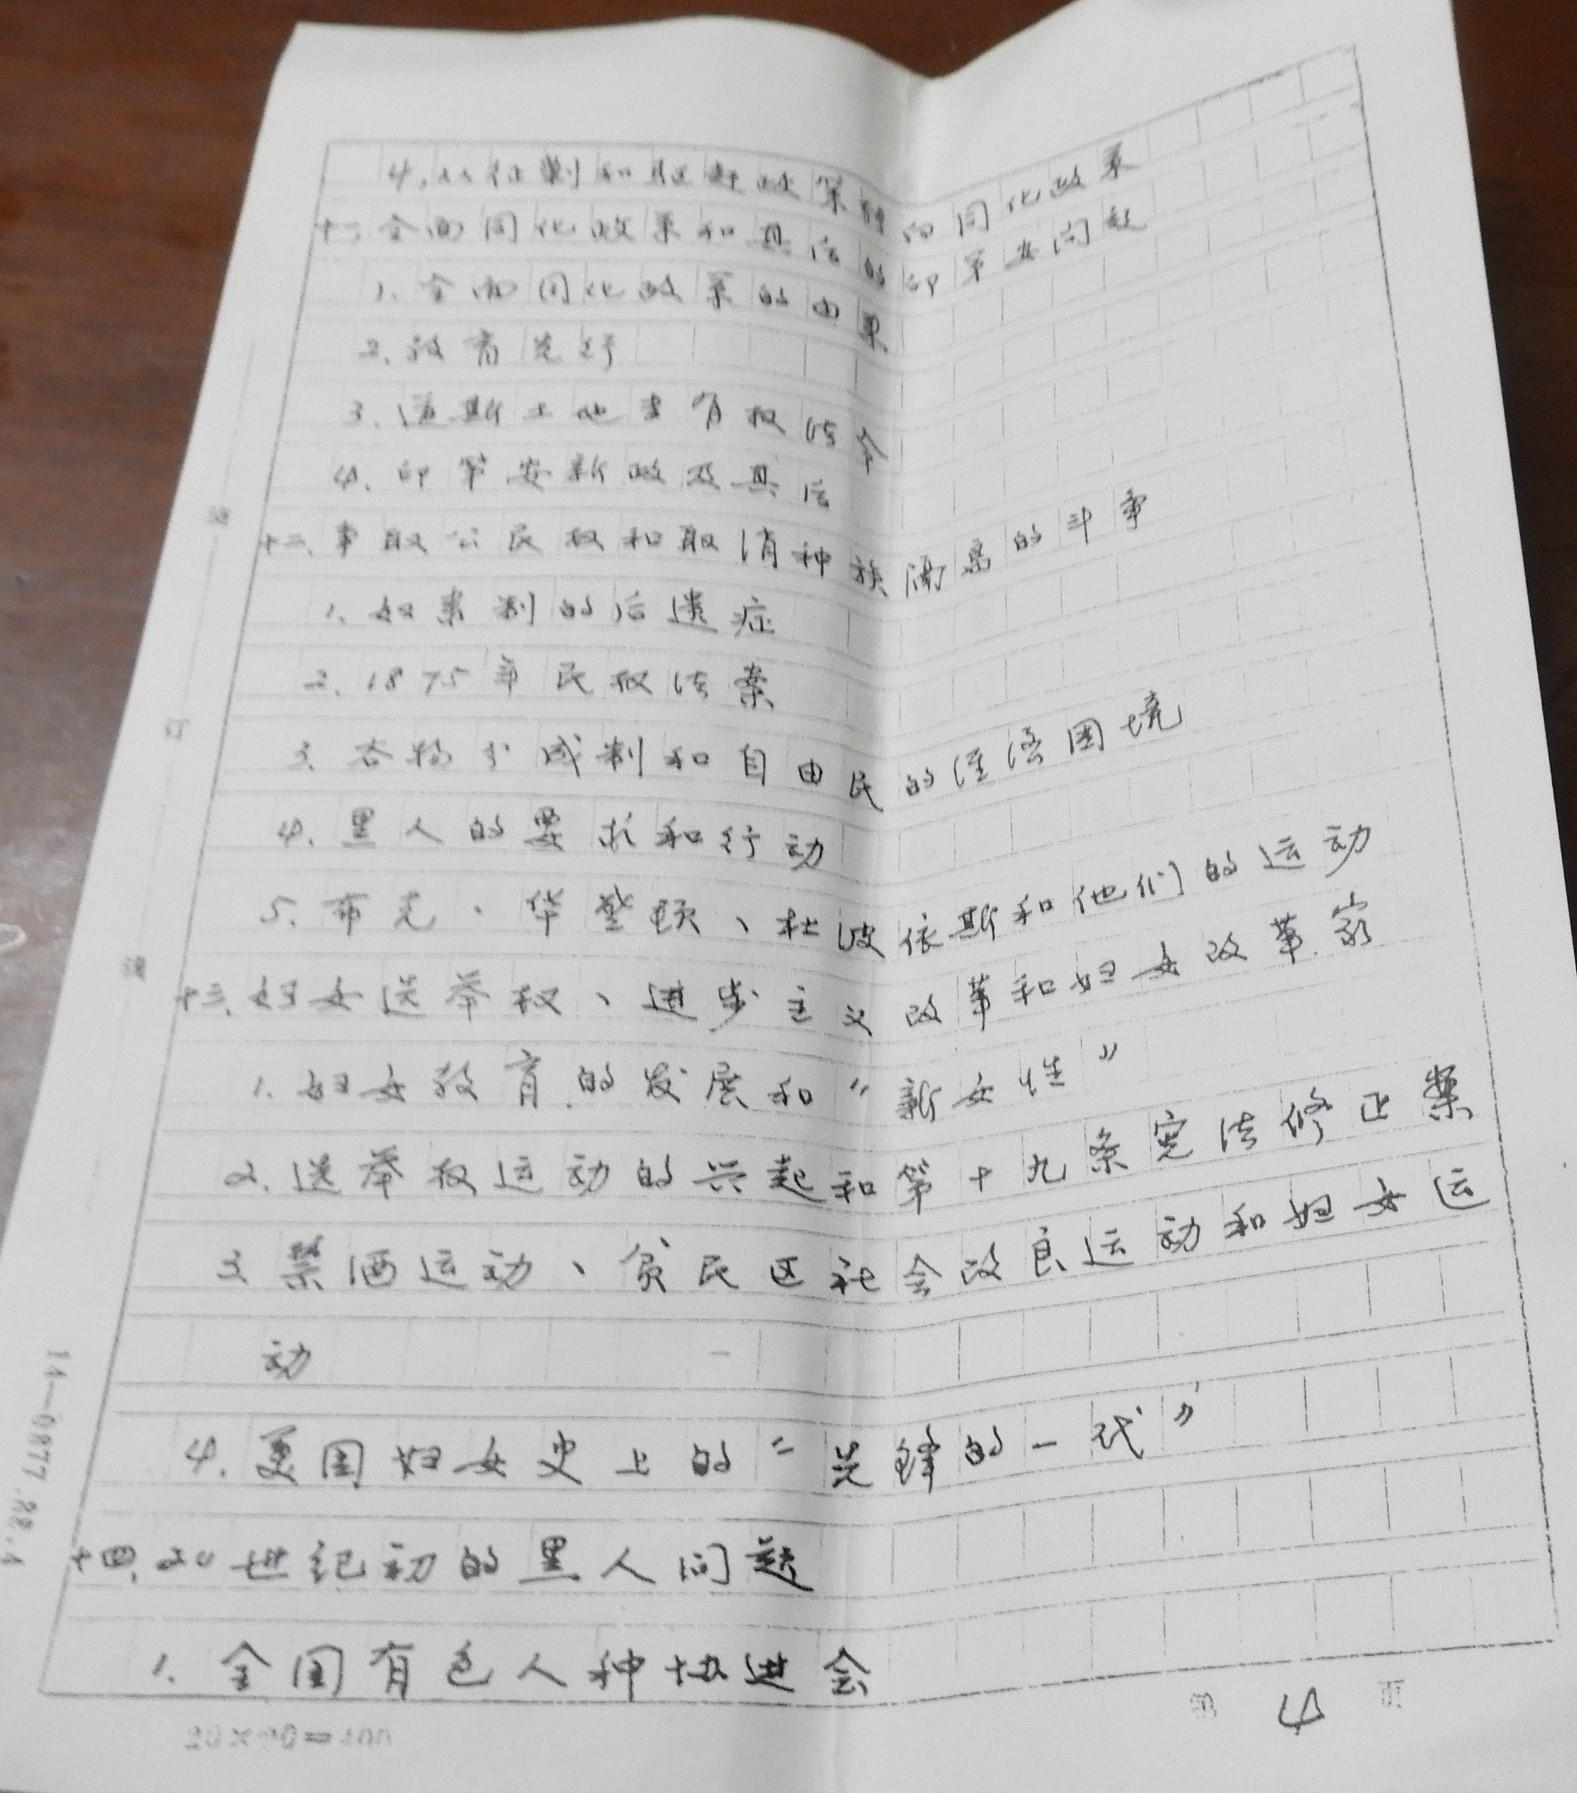 4.从征剿和驱赶政策转向同化政策
十一、全面同化政策和其后的印第安问题
1.全面同化政策的由来
2.教育先行
3.道斯土地占有权法令
4.印第安新政及其后
十二、争取公民权和取消种族隔离的斗争
1.奴隶制的后遗症
2.1875年民权法案
3.谷物分成制和自由民的经济困境
4.黑人的要求和行动
5.布克·华盛顿、杜波依斯和他们的运动
十三、妇女选举权、进步主义改革和妇女改革家
1.妇女教育的发展和"新女性"
2.选举权运动的兴起和第十九条宪法修正案
3.禁酒运动、贫民区社会改良运动和妇女运
动
4.美国妇女史上的"先锋的一代"
十四、20世纪初的黑人问题
1.全国有色人种协进会
第 4 页
20×20=400
装
订
线